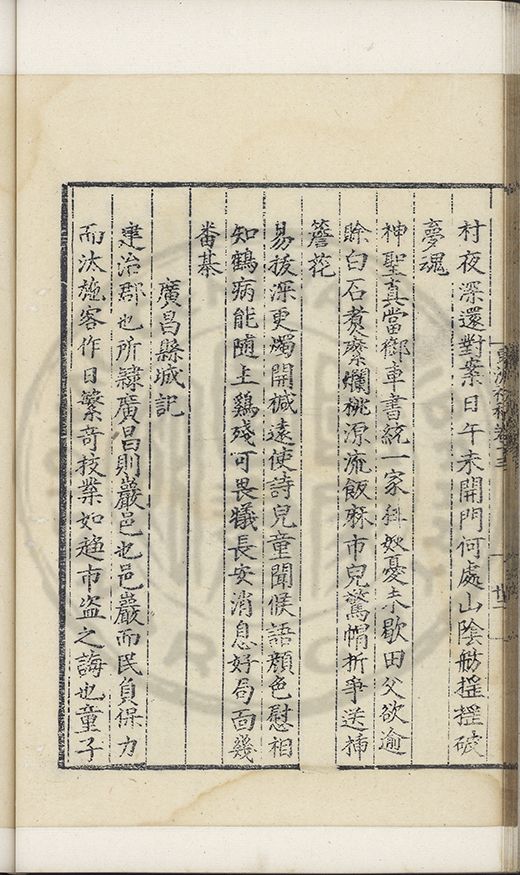 村夜深還對案日午未開門何處山陰舫搖搖破
夢魂
神聖真當御車書統一家科奴憂未歇田父欲逾
賒白石煑縻爛桃源流飯麻市兒驚帽折爭送揷
簷花
易拔深更燭開椷遠使詩兒童聞候語顏色慰相
知鶴病能随主鷄殘可畏犧長安消息好局面幾
番棊
廣昌縣城記
建治郡也所隸廣昌則巖邑也邑巖而民負保力
而汰施客作日繁奇技業如趨市盗之誨也童子